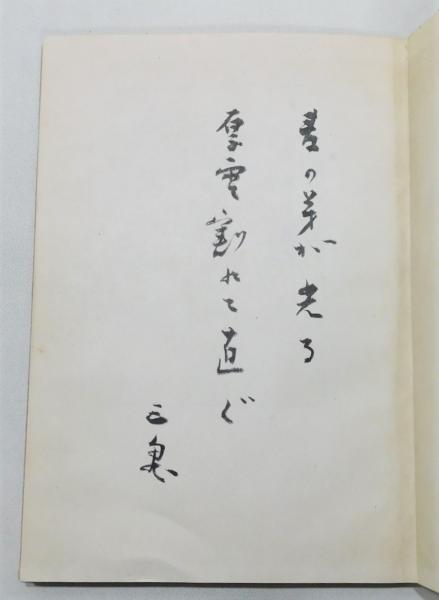 麦の芽が光る
厚雲割れて直ぐ
三鬼